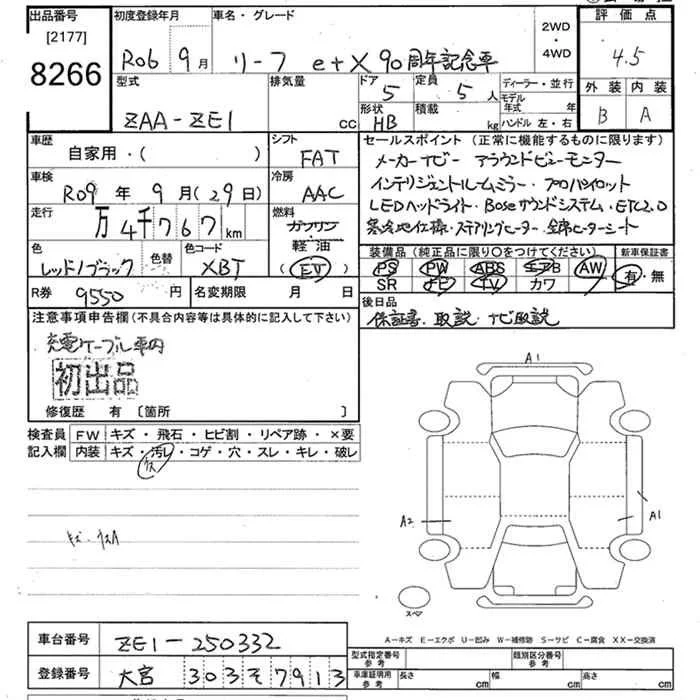 出品番号
[2177]
8266
初度登録年月
R06 9月
車名・グレード
リーフ e+X 90周年記念車
2WD
・
4WD
評価点
4.5
外装 内装
B A
型式
ZAA-ZE1
排気量
cc
ドア
5
定員
5人
形状
HB
積載
kg
ディーラー・並行
モデル
年式 年
ハンドル 左・右
車歴
自家用・( )
シフト
FAT
車検
R09年 9月(29日)
冷房
AAC
走行
万4千767km
燃料
ガソリン
軽油
(EV)
色
レッド/ブラック
色替
色コード
XBT
R券 9550円
名変期限 月 日
セールスポイント(正常に機能するものに限ります)
メーカーナビー アラウンドビューモニター
インテリジェントルームミラー・プロパイロット
LEDヘッドライト・Boseサウンドシステム・ETC2.0
寒冷地仕様・ステアリングヒーター・全席ヒーターシート
装備品(純正品に限り○をつけてください)
PS PW ABS エアB AW
SR ナビ TV カワ
新車保証書
有・無
後日品
保証書、取説、ナビ取説
注意事項申告欄(不具合内容等は具体的に記入して下さい)
充電ケーブル車内
初出品
修復歴 有 [箇所 ]
検査員
記入欄
FW キズ・飛石・ヒビ割・リペア跡・×要
内装 キズ・汚レ・コゲ・穴・スレ・キレ・破レ
A1
A2
A1
スペア
A−キズ E−エクボ U−凹み W−補修跡 S−サビ C−腐食 XX−交換済
車台番号 ZE1-250332
登録番号 大宮 303 そ 7913
型式指定番号
参考
類別区分番号
参考
車庫証明用
参考
長さ cm 幅 cm 高さ cm